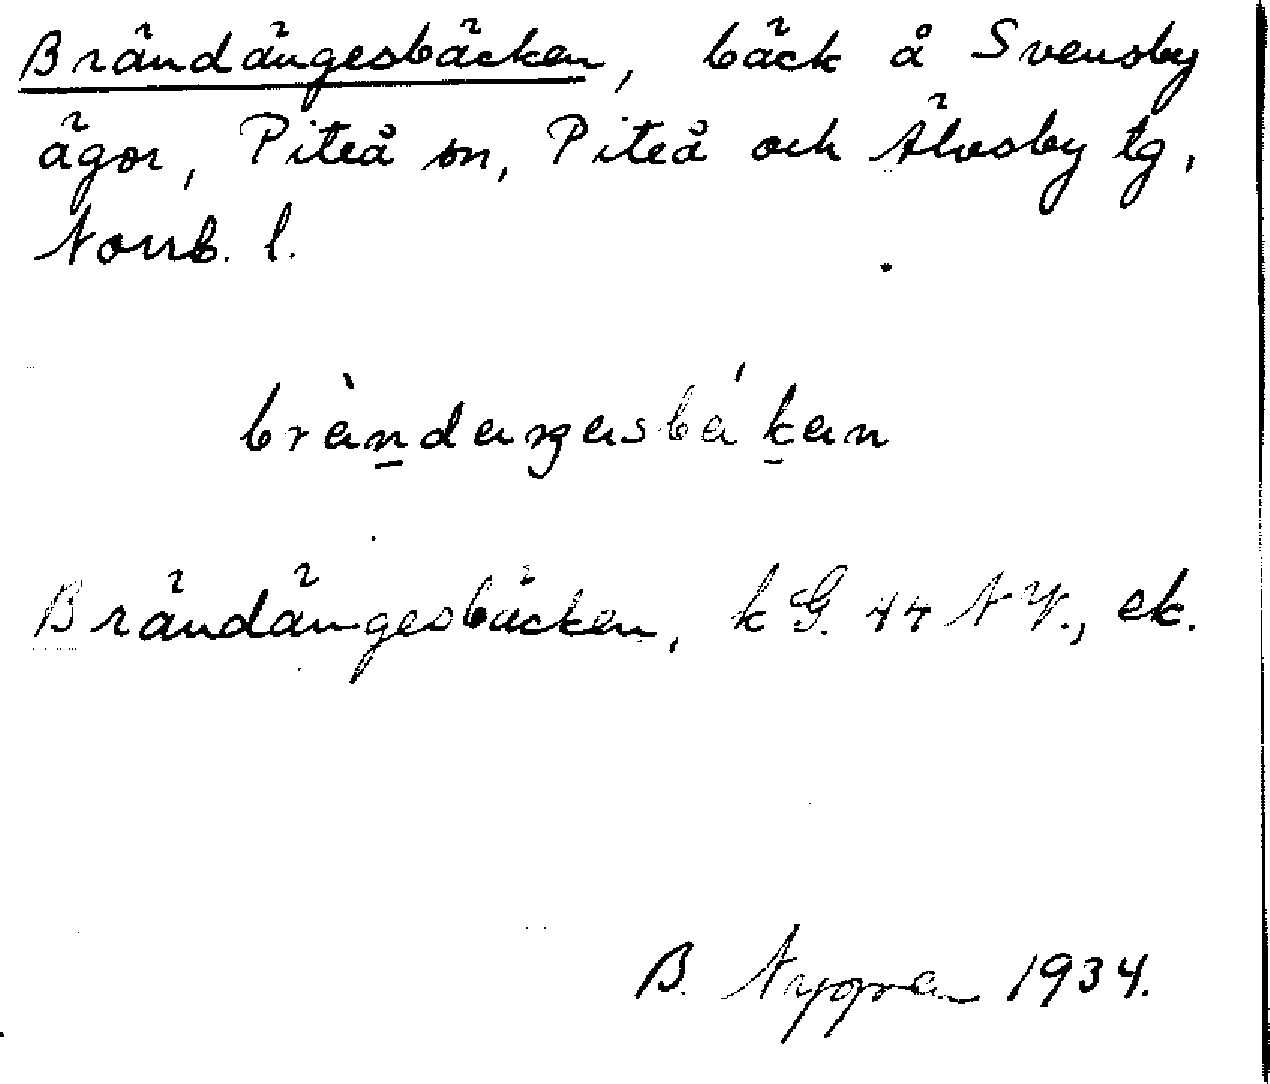 Brändängesbäcken, bäck å Svensby
ägor, Piteå sn, Piteå och Älvsby tg,
Norrb. l.
Brändängesbäcken, k G. 44 N Y., ek.
B. Nygren 1934.